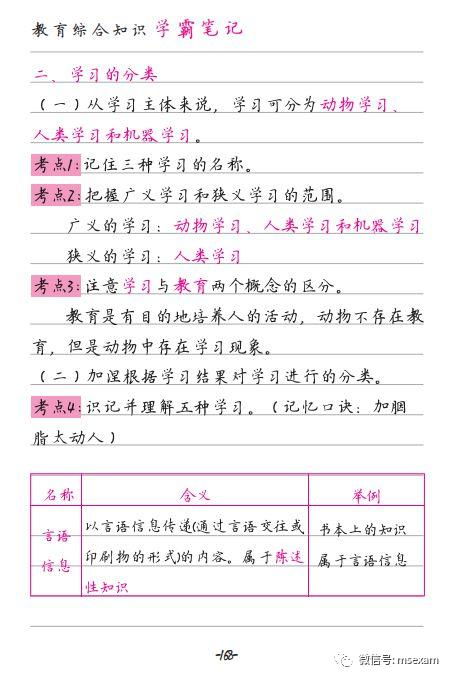 教育综合知识 学霸笔记
二、学习的分类
（一）从学习主体来说，学习可分为动物学习、
人类学习和机器学习。
考点1：记住三种学习的名称。
考点2：把握广义学习和狭义学习的范围。
广义的学习：动物学习、人类学习和机器学习
狭义的学习：人类学习
考点3：注意学习与教育两个概念的区分。
教育是有目的地培养人的活动，动物不存在教
育，但是动物中存在学习现象。
（二）加涅根据学习结果对学习进行的分类。
考点4：识记并理解五种学习。（记忆口诀：加胭
脂太动人）
名称 含义 举例
言语
信息
以言语信息传递(通过言语交往或
印刷物的形式)的内容。属于陈述
性知识
书本上的知识
属于言语信息
-168-
微信号: msexam